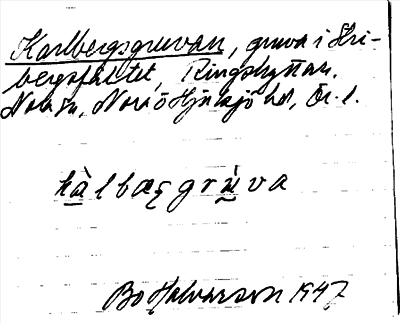 Karlbergsgruvan, gruva i Stri-
bergsfältet, Ringshyttan.
Nora sn, Nora o Hjulsjö hd, Ör. l.
kàlbæꞔgrùva
Bo Halvarson 1947